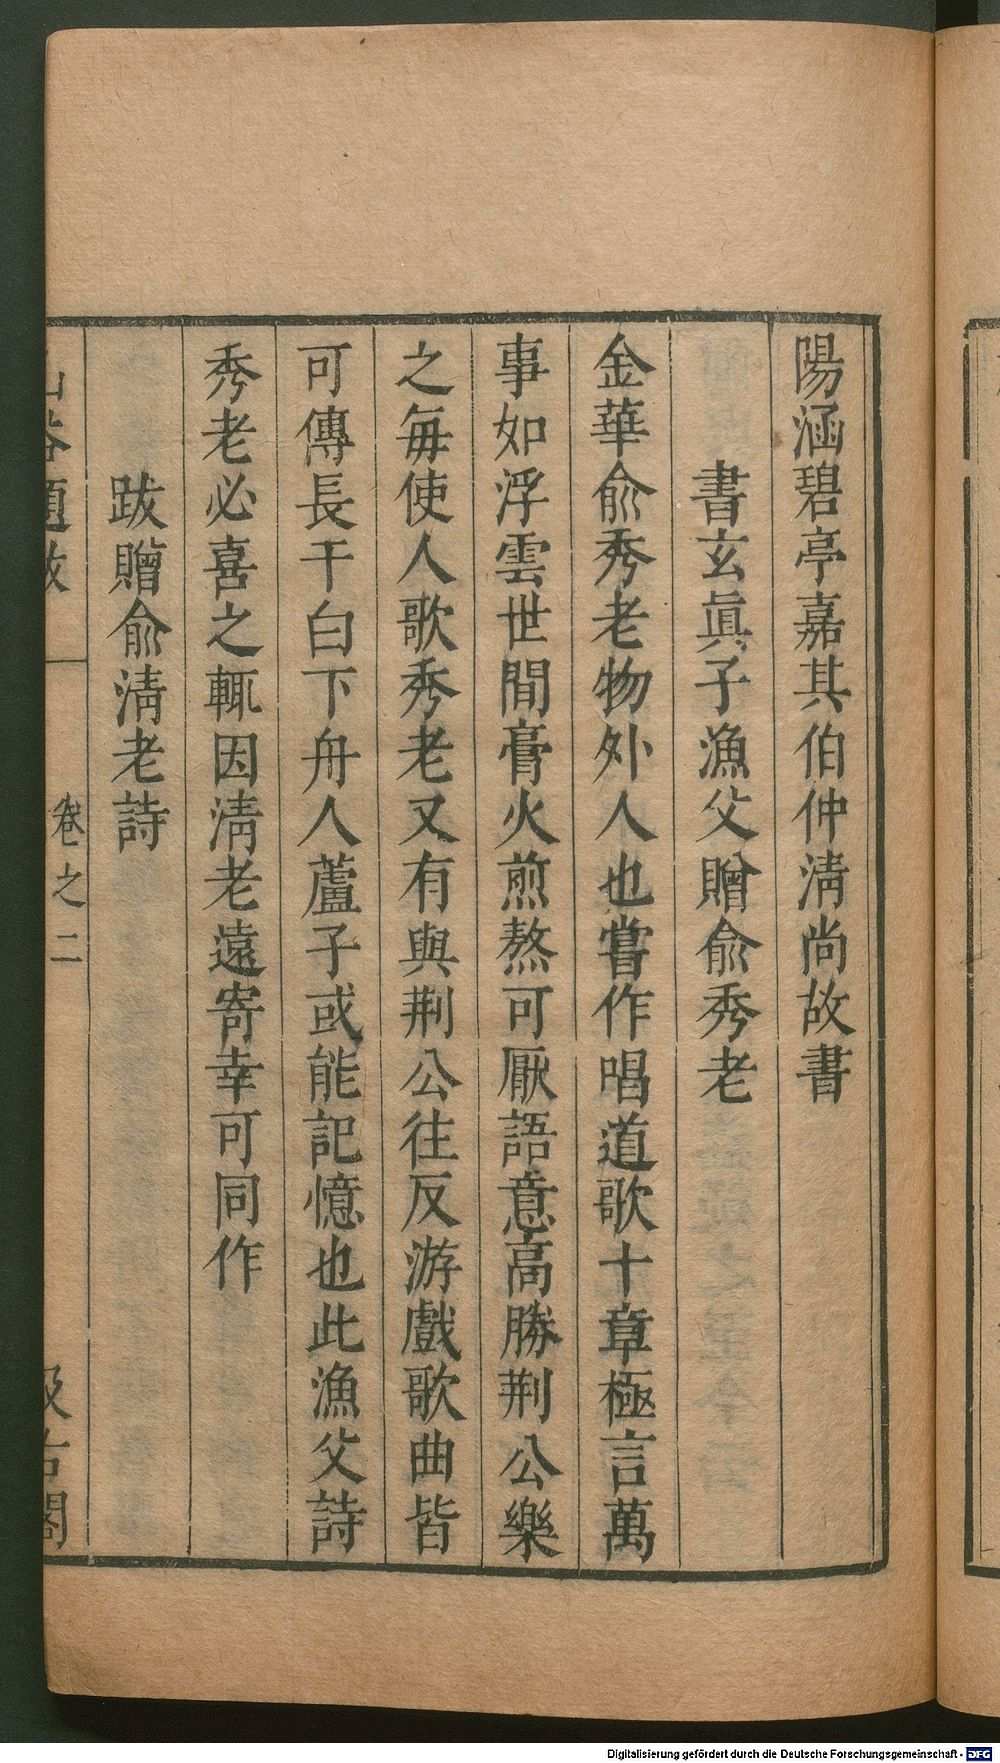 陽涵碧亭嘉其伯仲淸尚故書
書玄眞子漁父贈俞秀老
金華俞秀老物外人也嘗作唱道歌十章極言萬
事如浮雲世間膏火煎熬可厭語意高勝荆公樂
之每使人歌秀老又有與荆公往反游戲歌曲皆
可傳長干白下舟人蘆子或能記憶也此漁父詩
秀老必喜之輒因淸老遠寄幸可同作
跋贈俞淸老詩
山谷題跋
卷之二
汲古閣
Digitalisierung gefördert durch die Deutsche Forschungsgemeinschaft - DFG